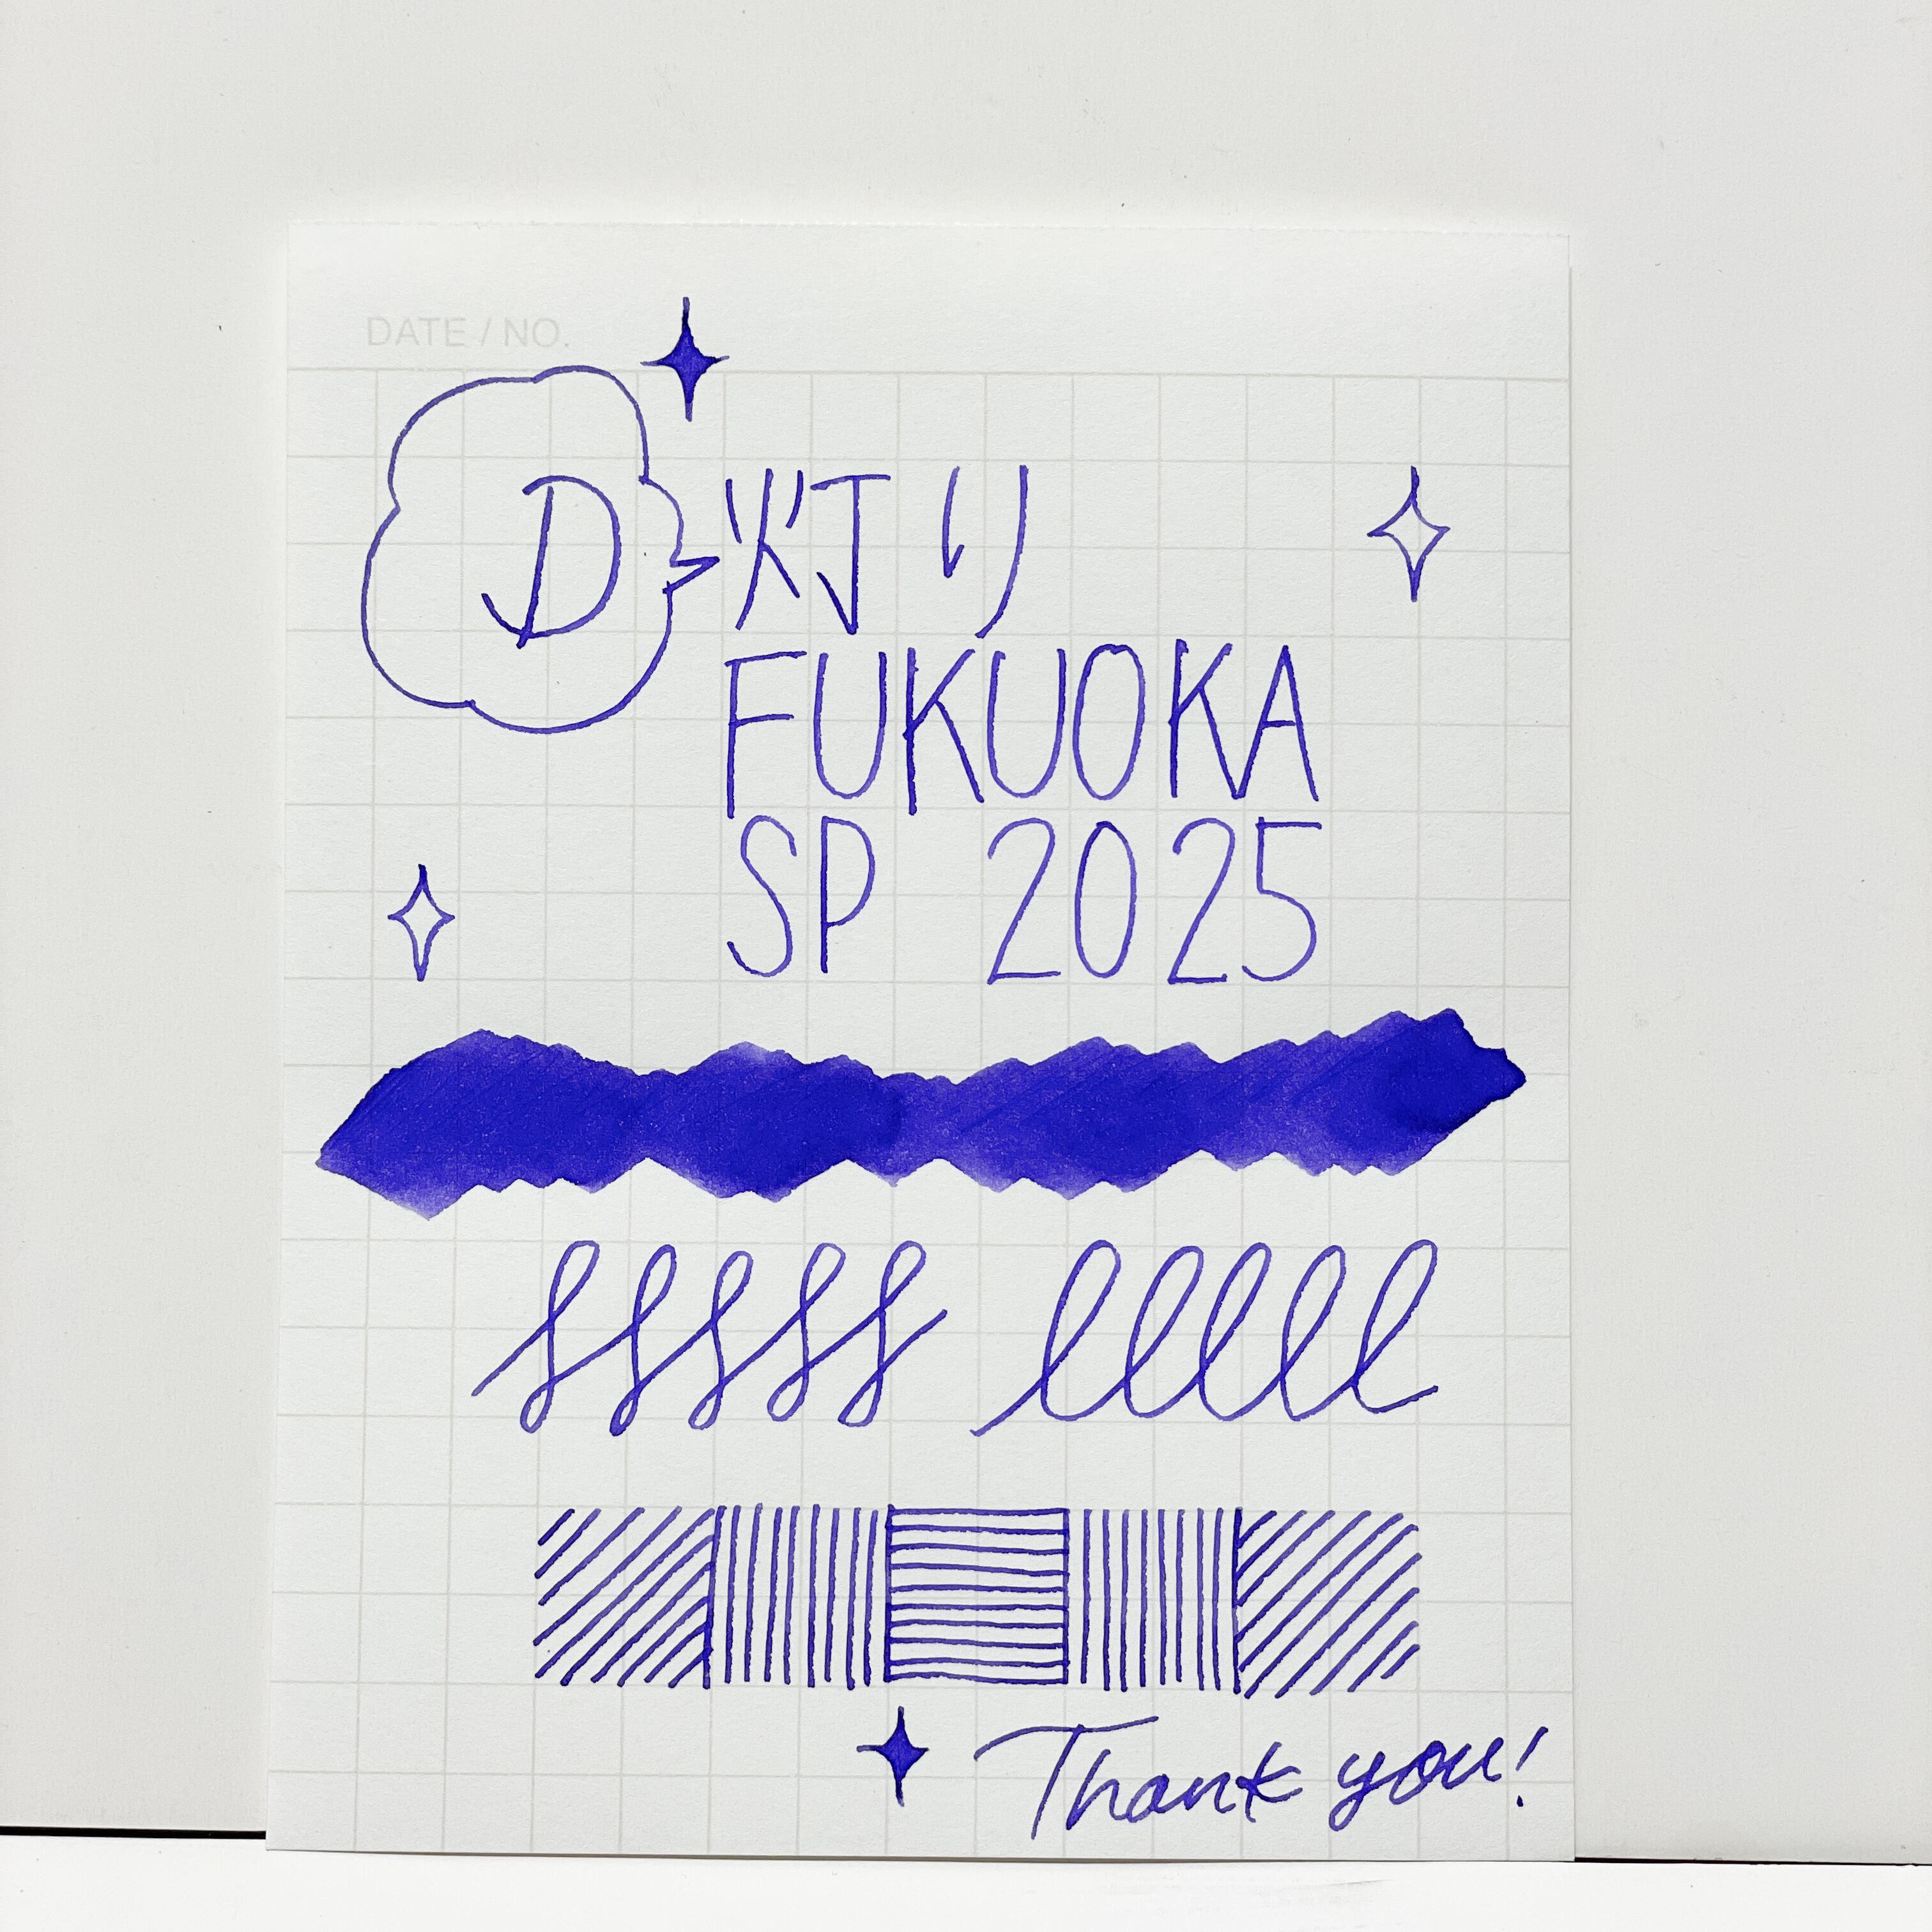 DATE / NO.
D
灯り
FUKUOKA
SP 2025
lllll
Thank you!